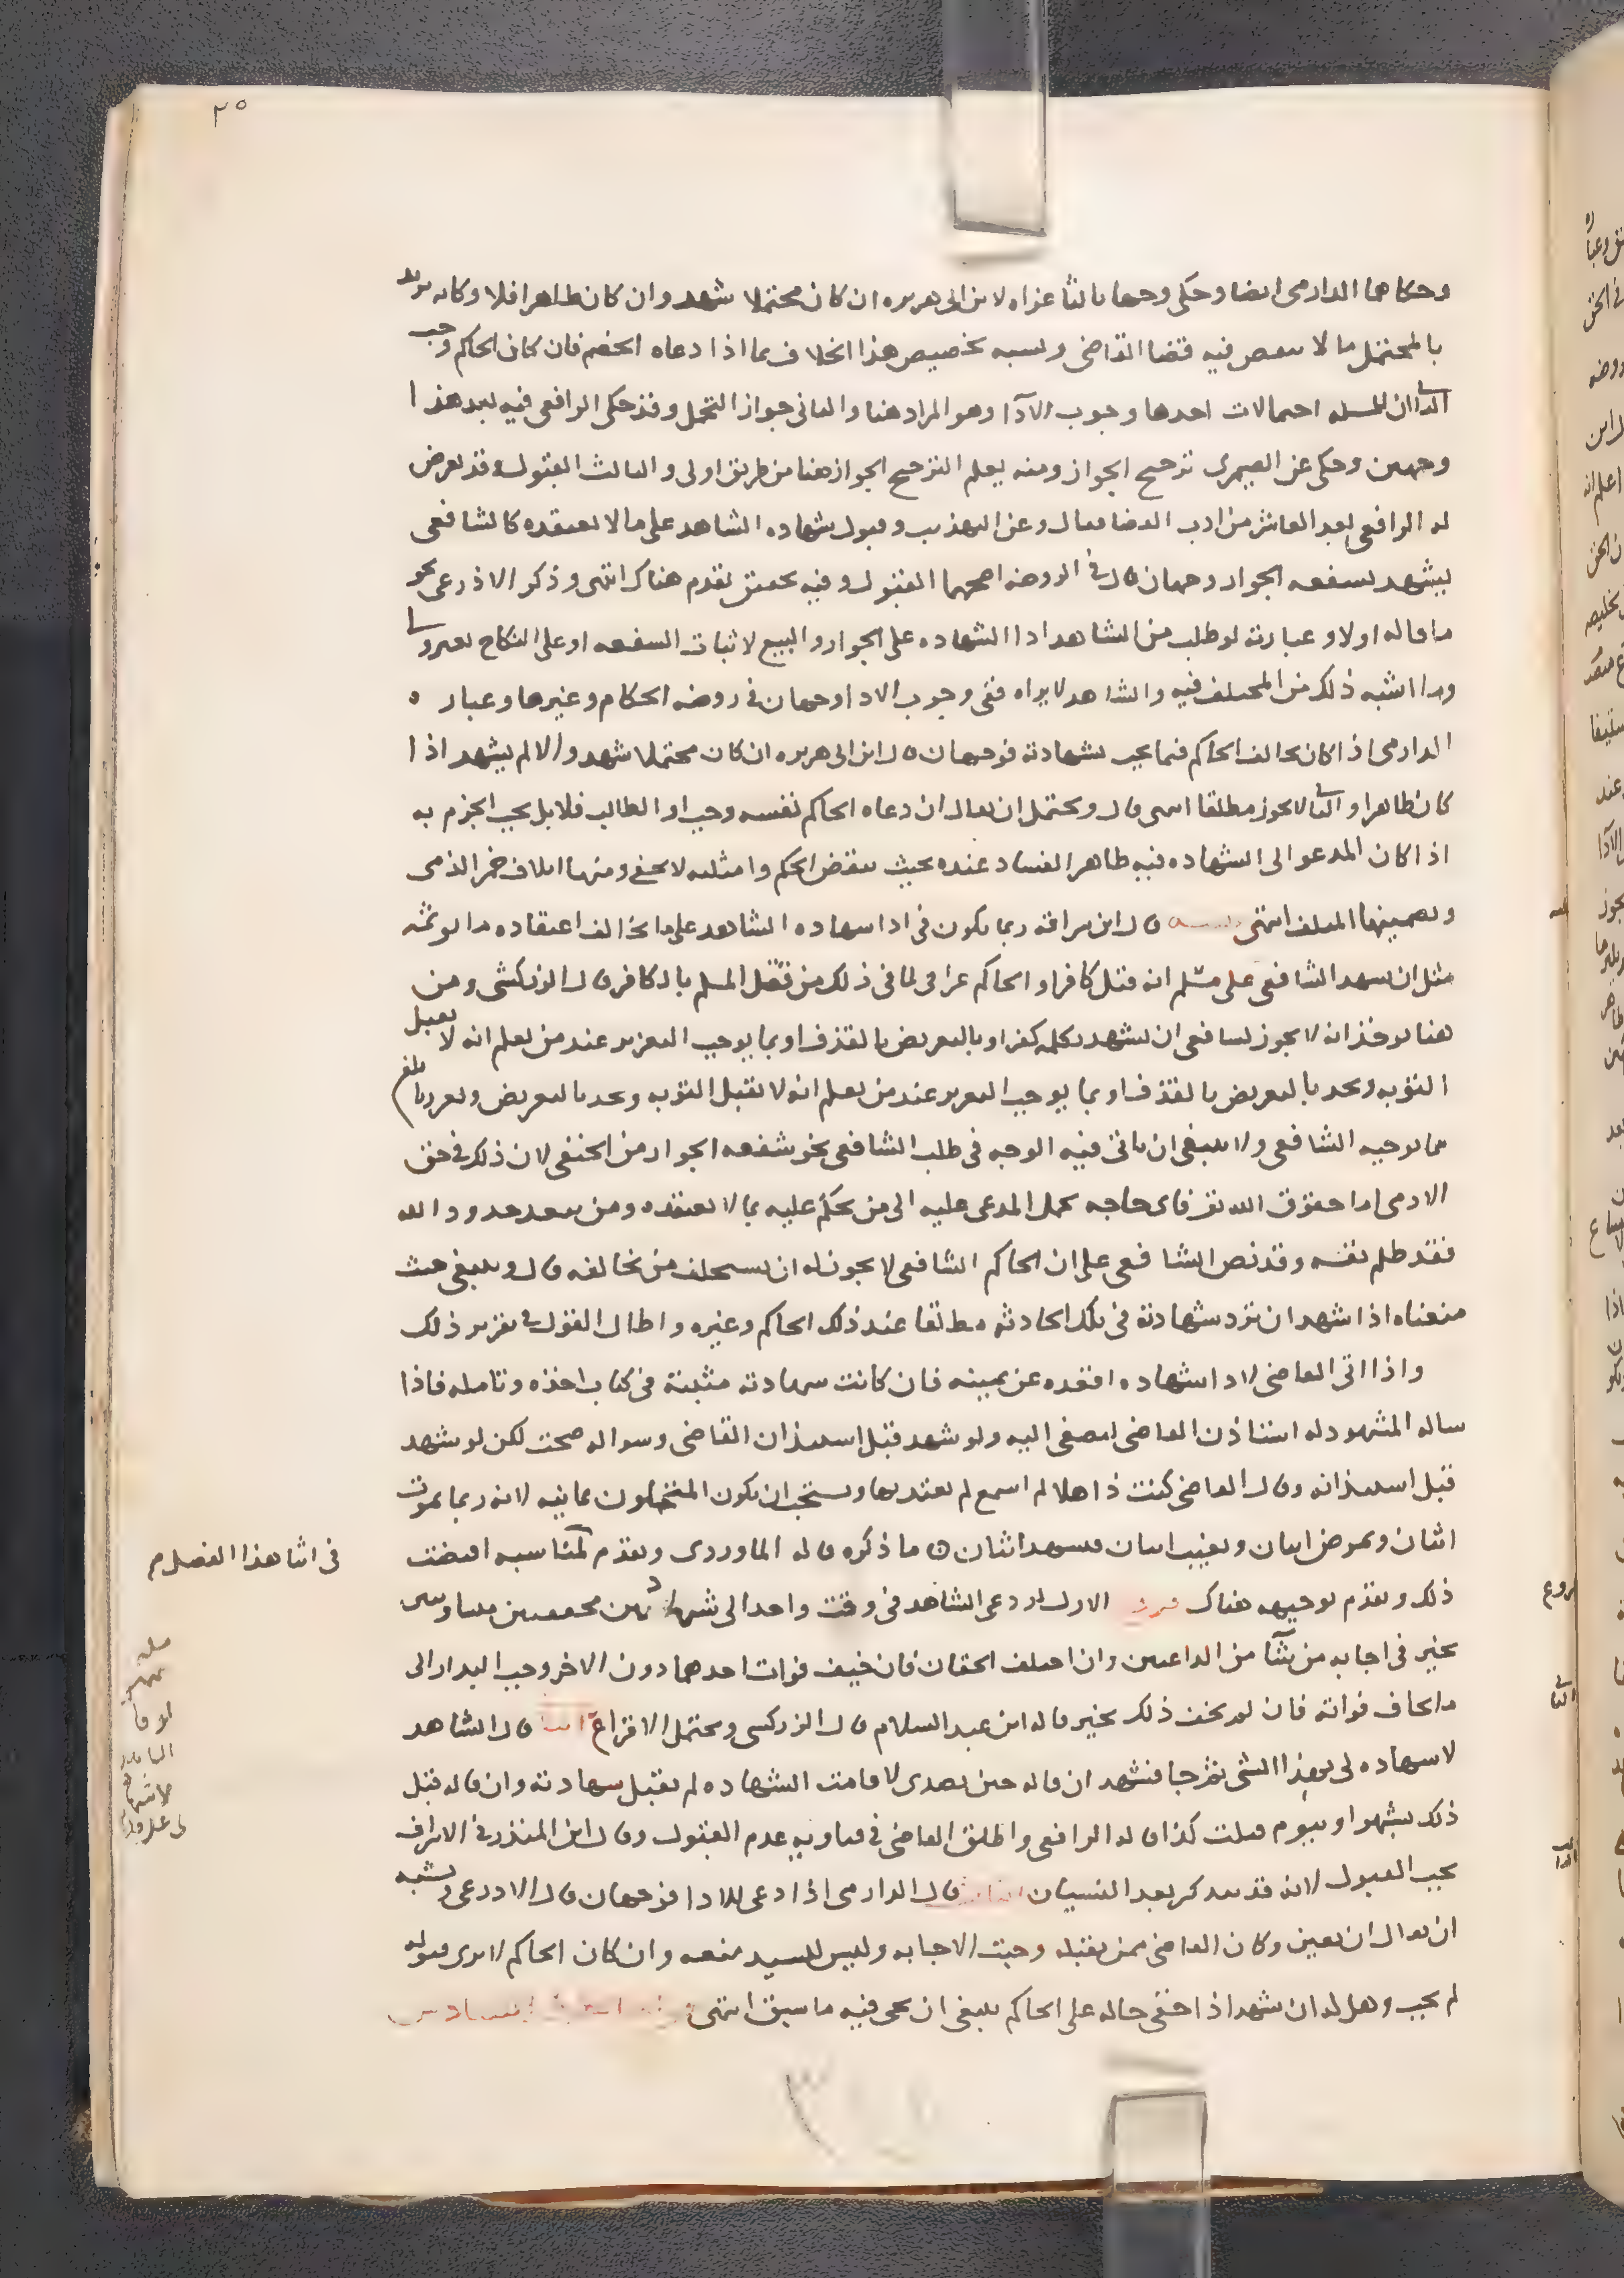 ٢٥
وحكاهما الدارمى ايضا وحكى وجها ثالثا عزاه لابن ابى هريره ان كان محتملا شهد وان كان ظاهرا فلا وكانه يريد
بالمحتمل ما لا ينقض فيه قضا القاضى ويشبه تخصيص هذا الخلاف بما اذا دعاه الخصم فان كان الحاكم وجب
الثانى ان للمسله احتمالات احدها وجوب الادآ وهو المراد هنا والثانى جواز التحمل وقد حكى الرافعى فيه بعد هذا
وجهين وحكى عن الصيمرى ترجيح الجواز ومنه يعلم الترجيح الجواز هنا من طريق اولى والثالث القبول وقد تعرض
له الرافعى بعد العاشر من ادب القضا فقال وعن التهذيب وقبول شهاده الشاهد على ما لا يعتقده كالشافعى
يشهد بشفعه الجوار وجهان قال فى الروضه اصحهما القبول وفيه تحقيق تقدم هناك انتهى وذكر الاذرعى نحو
ما قاله اولا وعبارته لو طلب من الشاهد ادا الشهاده على الجوار والبيع لاثبات الشفعه او على النكاح بغير ولى
وما اشبه ذلك من المختلف فيه والشاهد لا يراه ففى وجوب الادا وجهان فى روضه الحكام وغيرها وعباره
الدارمى اذا كان يخالف الحاكم فيما يجب بشهادته فوجهان قال ابن ابى هريره ان كان محتملا شهد والا لم يشهد اذا
كان ظاهرا والثانى لا يجوز مطلقا انتهى قال ويحتمل ان يقال ان دعاه الحاكم نفسه وجب او الطالب فلا بل يجب الجزم به
اذا كان المدعو الى الشهاده فيه ظاهر الفساد عنده بحيث ينقض الحكم وامثلته لا تخفى ومنها اتلاف خمر الذمى
وتضمينها المتلف انتهى قال ابن سراقه ربما يكون فى ادا شهاده الشاهد على ما يخالف اعتقاده ما يوثمه
مثل ان يشهد الشافعى على مسلم انه قتل كافرا والحاكم عراقى لما فى ذلك من قتل المسلم بالكافر قال الزركشى ومن
هنا يوخذ انه لا يجوز لشافعى ان يشهد بكلمه كفر او بالتعريض بالقذف او بما يوجب التعزير عند من يعلم انه لا يقبل
التوبه ويحد بالتعريض بالقذف او بما يوجب التعزير عند من يعلم انه لا يقبل التوبه ويحد بالتعريض ويعزر بابلغ
مما يوجبه الشافعى ولا ينبغى ان ياتى فيه الوجه فى طلب الشافعى نحو شفعه الجوار من الحنفى لان ذلك فى حق
الادمى اما حقوق الله تع فاى حاجه تحمل المدعى عليه الى من يحكم عليه بما لا يعتقده ومن يتعد حدود الله
فقد ظلم نفسه وقد نص الشافعى على ان الحاكم الشافعى لا يجوز له ان يستخلف من يخالفه قال وينبغى حيث
منعناه اذا شهد ان ترد شهادته فى تلك الحادثه مطلقا عند ذلك الحاكم وغيره واطال القول فى تقرير ذلك
واذا اتى القاضى لادا شهاده اقعده عن يمينه فان كانت شهادته مثبته فى كتاب اخذه وتامله فاذا
ساله المشهود له استاذن القاضى ليصغى اليه ولو شهد قبل استيذان القاضى وسواله صحت لكن لو شهد
قبل استيذانه وقال القاضى كنت ذاهلا لم اسمع لم يعتد بها ويستحب ان يكون المتحملون ثمانيه لانه ربما يموت
اثنان ويمرض اثنان ويغيب اثنان فيشهد اثنان ما ذكره قاله الماوردى وتقدم لمناسبه اقتضت
فى اثنا هذا الفصل م
ذلك وتقدم توجيهه هناك الاول لو دعى الشاهد فى وقت واحد الى شهادتين بحقين متساويين
تخير فى اجابه من شآ من الداعيين وان اختلف الحقان فان خيف فوات احدهما دون الاخر وجب البدار الى
ما يخاف فواته فان لم يخف ذلك تخير قاله ابن عبد السلام قال الزركشى ويحتمل الاقراع قال الشاهد
لا شهاده لى بهذا الشى ثم جا فشهد ان قاله حين تصدى لاقامت الشهاده لم تقبل شهادته وان قاله قبل
ذلك بشهر او بيوم قبلت كذا قاله الرافعى واطلق القاضى فى فتاويه عدم القبول وقال ابن المنذر فى الاشراف
يجب القبول لانه قد يتذكر بعد النسيان قال الدارمى اذا دعى للادا فوجهان قال الاذرعى ويشبه
ان يقال ان تعين وكان القاضى ممن يقبله وجبت الاجابه وليس للسيد منعه وان كان الحاكم لا يرى قبوله
لم يجب وهل له ان يشهد اذا خفى حاله على الحاكم ينبغى ان يجى فيه ما سبق انتهى